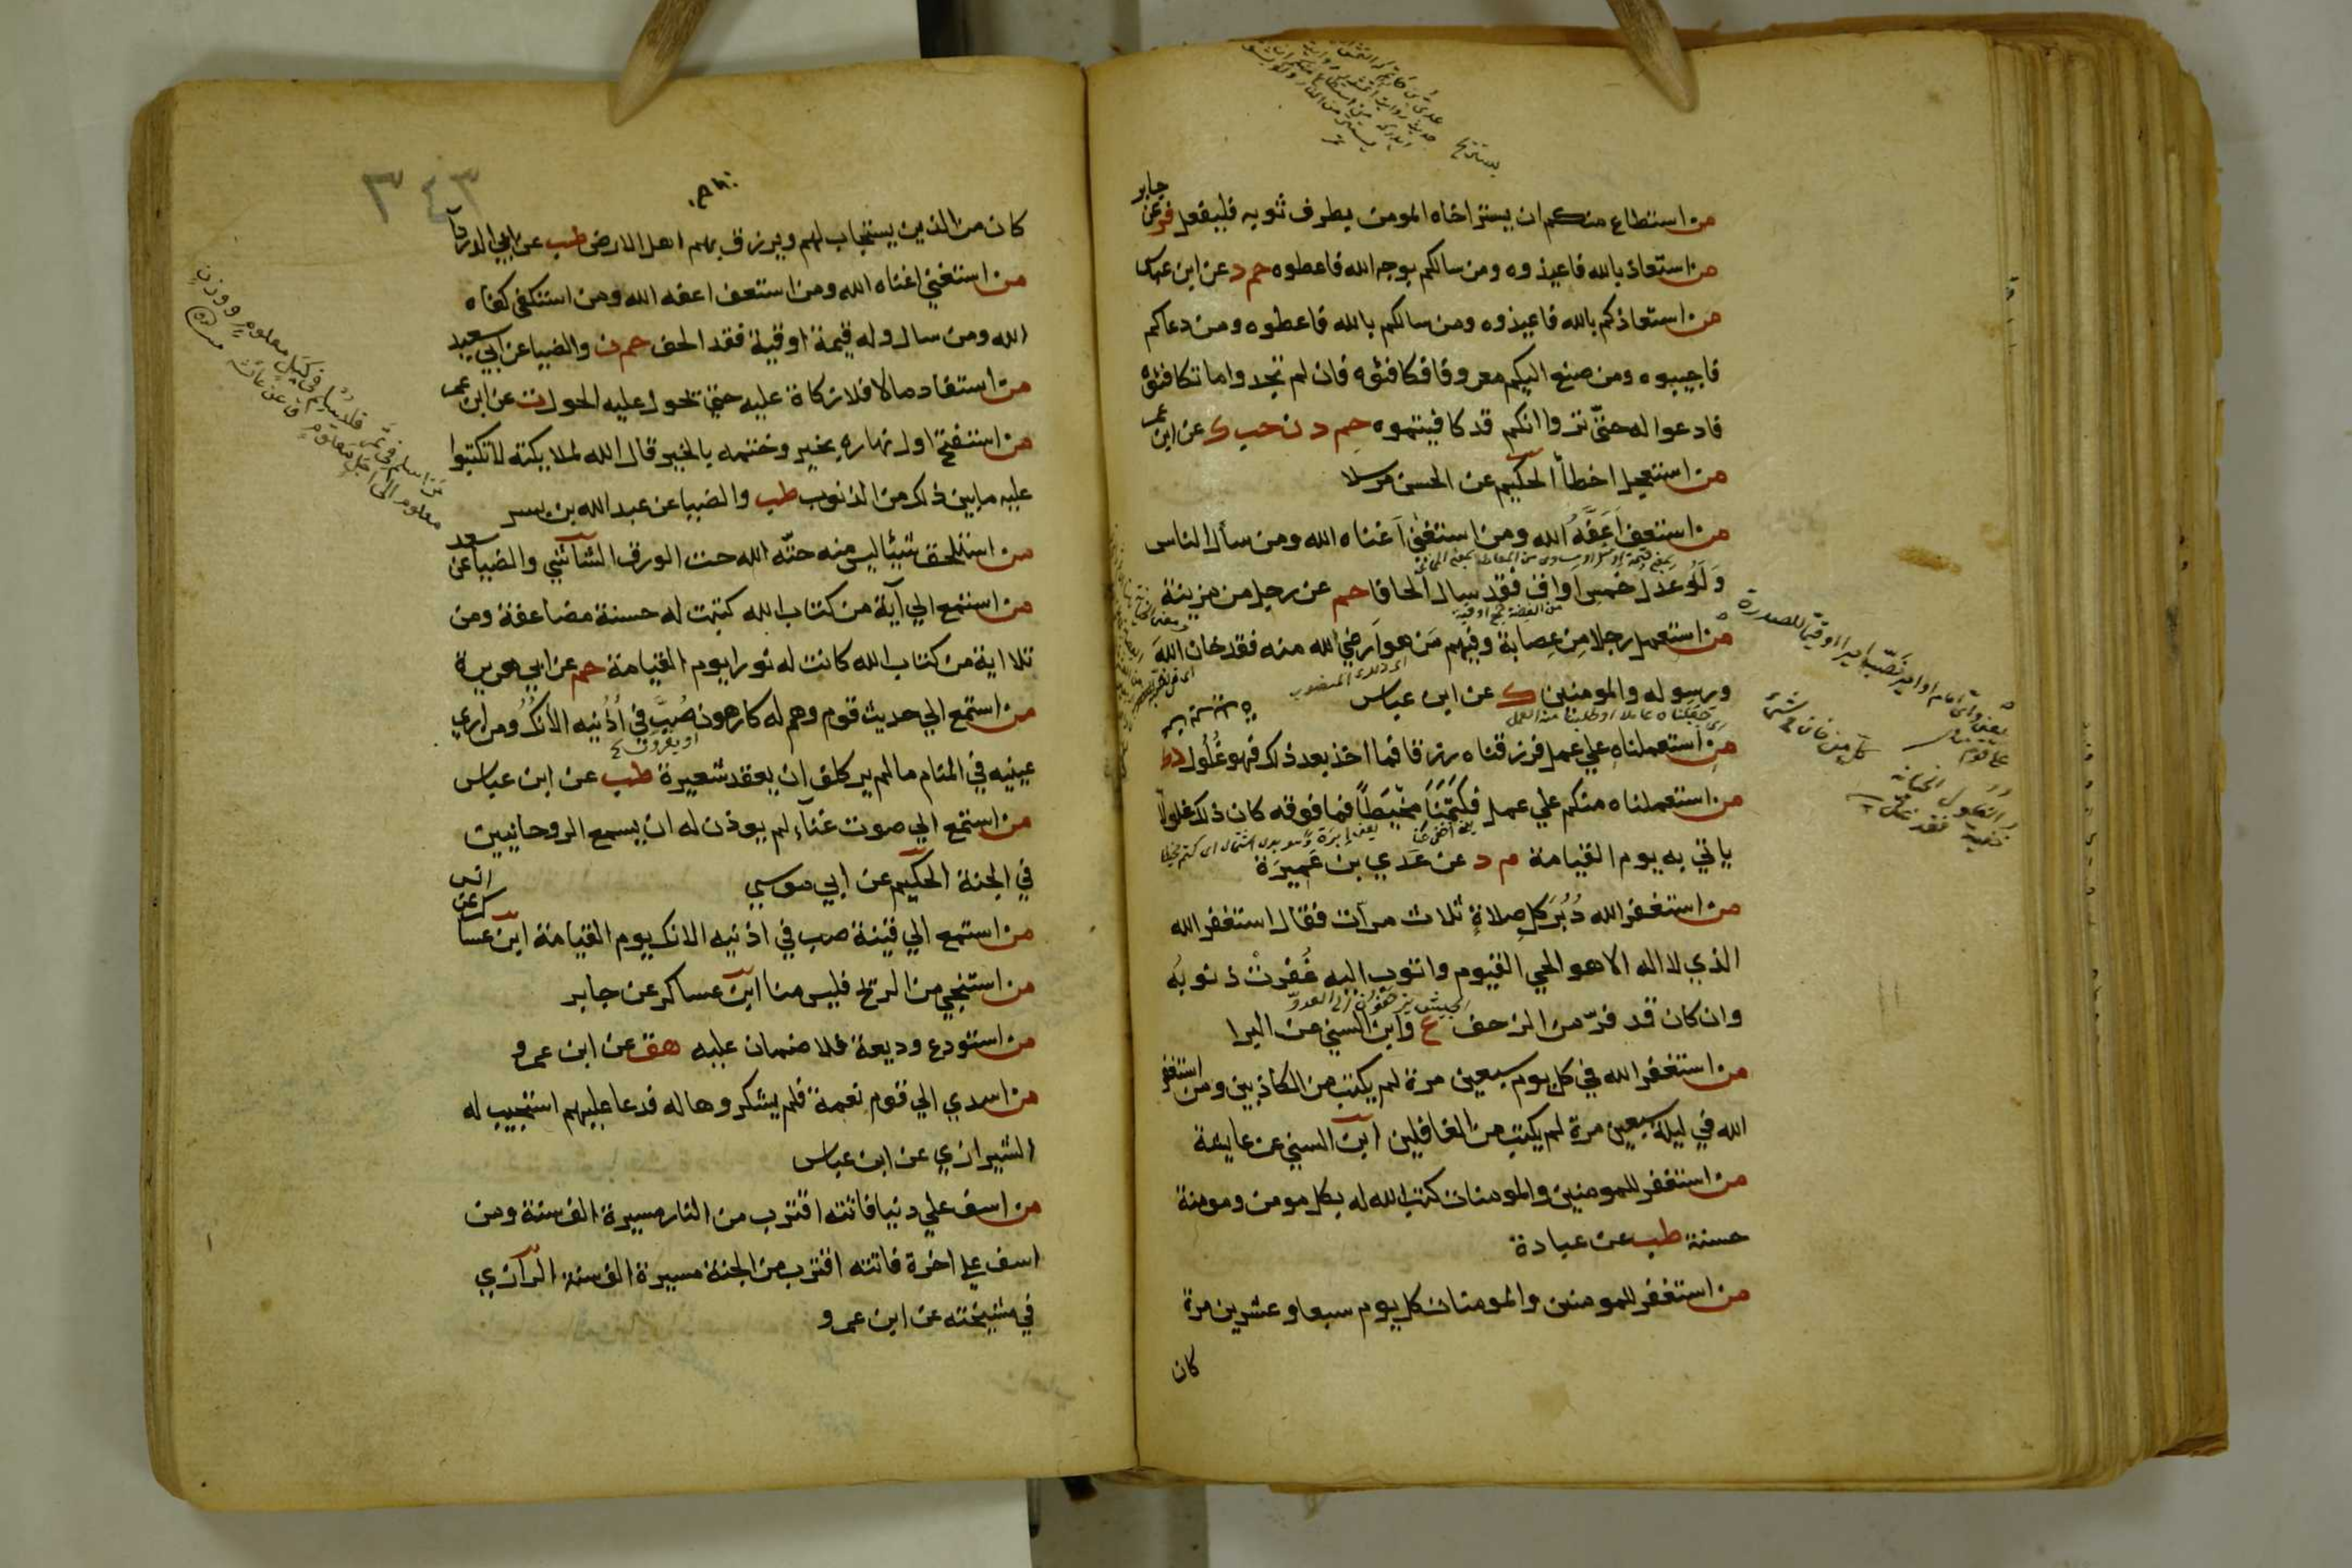 من استطاع منكم ان يستر اخاه المومن بطرف ثوبه فليفعل فر عن جابر
من استعاذ بالله فاعيذوه ومن سالكم بوجه الله فاعطوه حم د عن ابن عباس
من استعاذكم بالله فاعيذوه ومن سالكم بالله فاعطوه ومن دعاكم
فاجيبوه ومن صنع اليكم معروفا فكافئوه فان لم تجدوا ما تكافئوه
فادعوا له حتّى تروا انكم قد كافيتموه حم د ن حب ك عن ابن عمر
من استعجل اخطأ الحكيم عن الحسن مرسلا
من استعف اَعَفَّهُ الله ومن استغنى اَغناه الله ومن سأل الناس
وَلَهُ عدل خمس اواق فقد سال الحافا حم عن رجل من مزينة
من الفضة جمع اوقية
من استعمل رجلا مِن عِصابة وفيهم مَن هو اَرضي لله منه فقد خان اللهَ
ورسوله والمومنين ك عن ابن عباس
من استعملناه علي عمل فرزقناه رزقا فما اخذ بعد ذلك فهو غُلُول د ك
من استعملناه منكم علي عمل فكتَمَنَا مِخْيَطاً فما فوقه كان ذلك غلولا
ياتي به يوم القيامة م د عن عَدي بن عَمِيرَة
من استغفر الله دُبُرَ كل صلاةٍ ثلاث مرات فقال استغفر الله
الذي لا اله الا هو الحي القيوم واتوب اليه غُفرتْ ذنوبُه
وان كان قد فرّ من الزحف ع وابن السني عن البرا
من استغفر الله في كل يوم سبعين مرة لم يكتب من الكاذبين ومن استغفر
الله في ليلة سبعين مرة لم يكتب من الغافلين ابن السني عن عايشة
من استغفر للمومنين والمومنات كتب الله له بكل مومن ومومنة
حسنة طب عن عبادة
من استغفر للمومنين والمومنات كل يوم سبعا وعشرين مرة
كان
٣٤٣
كان من الذين يستجاب لهم ويرزق بهم اهل الارض طب عن ابي الدرداء
من استغني اغناه الله ومن استعف اعفه الله ومن استكفى كفاه
الله ومن سال وله قيمة اوقية فقد الحف حم ن والضيا عن ابي سعيد
من استفاد مالا فلا زكاة عليه حتي يحول عليه الحول ت عن ابن عمر
من استفتح اول نهاره بخير وختمه بالخير قال الله لملايكته لا تكتبوا
عليه ما بين ذلك من الذنوب طب والضيا عن عبد الله بن بسر
من استلحق شيئا ليس منه حتّه الله حت الورق الشاشي والضيا عن سعد
من استمع الي آية من كتاب الله كتبت له حسنة مضاعفة ومن
تلا اية من كتاب الله كانت له نورا يوم القيامة حم عن ابي هريرة
من استمع الي حديث قوم وهم له كارهون صُبَّ في اُذُنيه الآنكُ ومن اري
عينيه في المنام ما لم ير كلف ان يعقد شعيرة طب عن ابن عباس
من استمع الي صوت غناءٍ لم يوذن له ان يسمع الروحانيين
في الجنة الحكيم عن ابي موسي
من استمع الي قينة صب في اذنيه الانك يوم القيامة ابن عساكر عن انس
من استنجي من الريح فليس منا ابن عساكر عن جابر
من استودع وديعة فلا ضمان عليه هق عن ابن عمرو
من اسدي الي قوم نعمة فلم يشكروها له فدعا عليهم استجيب له
الشيرازي عن ابن عباس
من اسف علي دنيا فاتته اقترب من النار مسيرة الف سنة ومن
اسف علي اخرة فاتته اقترب من الجنة مسيرة الف سنة الرازي
في مشيخته عن ابن عمرو
من اسلم في تمر فلا يسلم في كَيْلٍ معلومٍ ووزنٍ
معلوم الي اجل معلوم